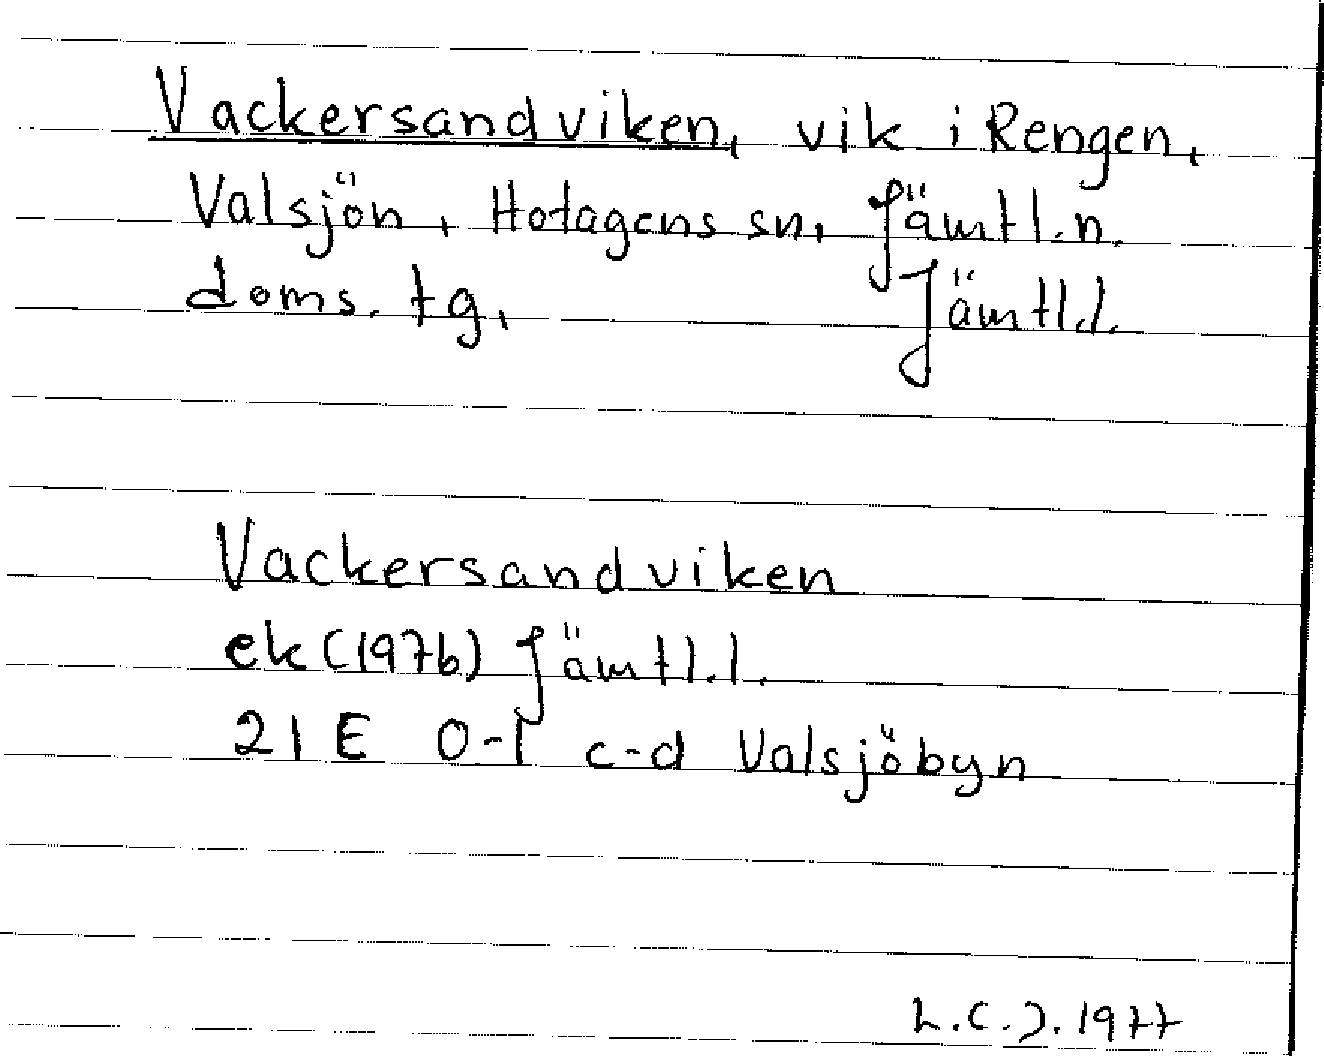 Vackersandviken, vik i Rengen,
Valsjön, Hotagens sn, Jämtl.n.
doms. tg, Jämtl.l.
Vackersandviken
ek (1976) Jämtl.l.
21 E 0-1 c-d Valsjöbyn
L.C.J. 1977